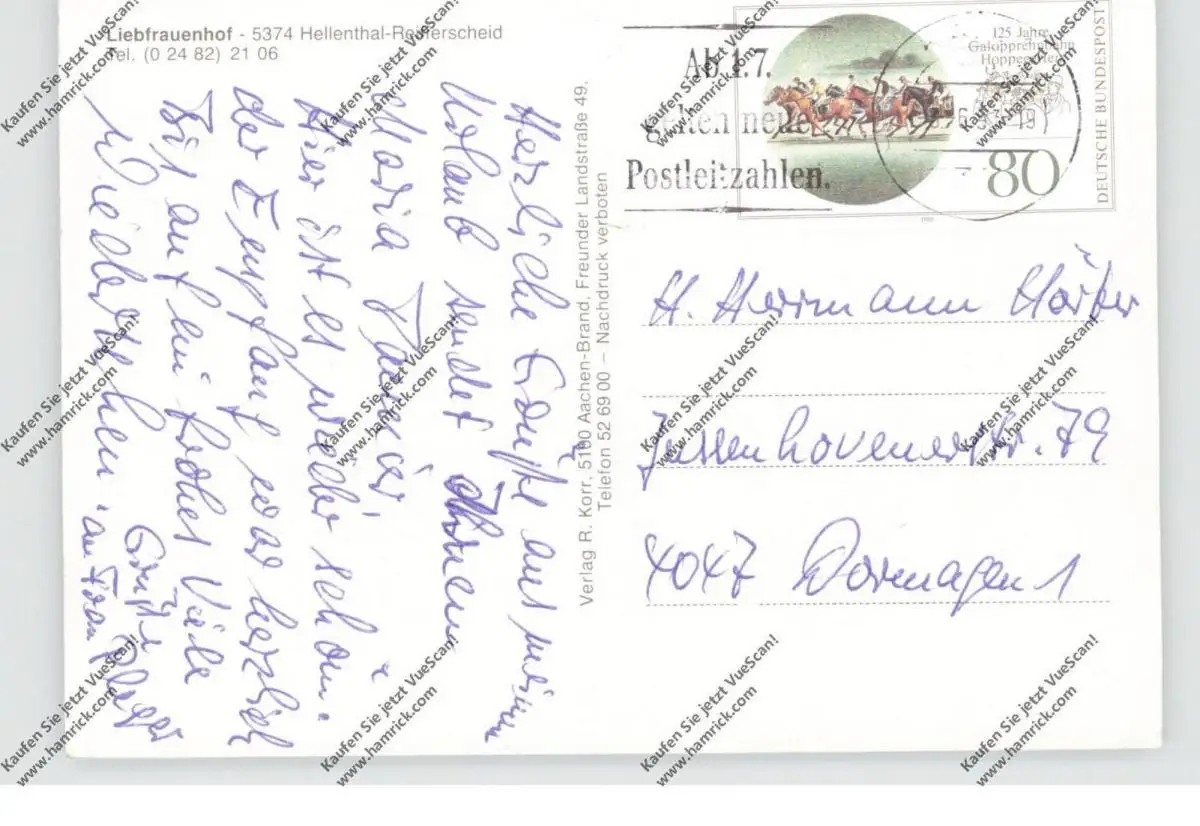 Liebfrauenhof - 5374 Hellenthal-Reifferscheid
Tel. (0 24 82) 21 06
Herzliche Grüße aus meinem
Urlaub sendet Ihnen
Maria
Hier ist es wieder schön.
der Empfang war herzlich
Bis auf ein frohes
Wiedersehen
Grüße
an Frau
Verlag R. Korr, 5100 Aachen-Brand, Freunder Landstraße 49.
Telefon 52 69 00 – Nachdruck verboten
Ab 1.7.
gelten neue
Postleitzahlen.
125 Jahre
Galopprennbahn
Hoppegarten
80
DEUTSCHE BUNDESPOST
H. Herrmann
79
4047 Dormagen 1
Kaufen Sie jetzt VueScan!
www.hamrick.com